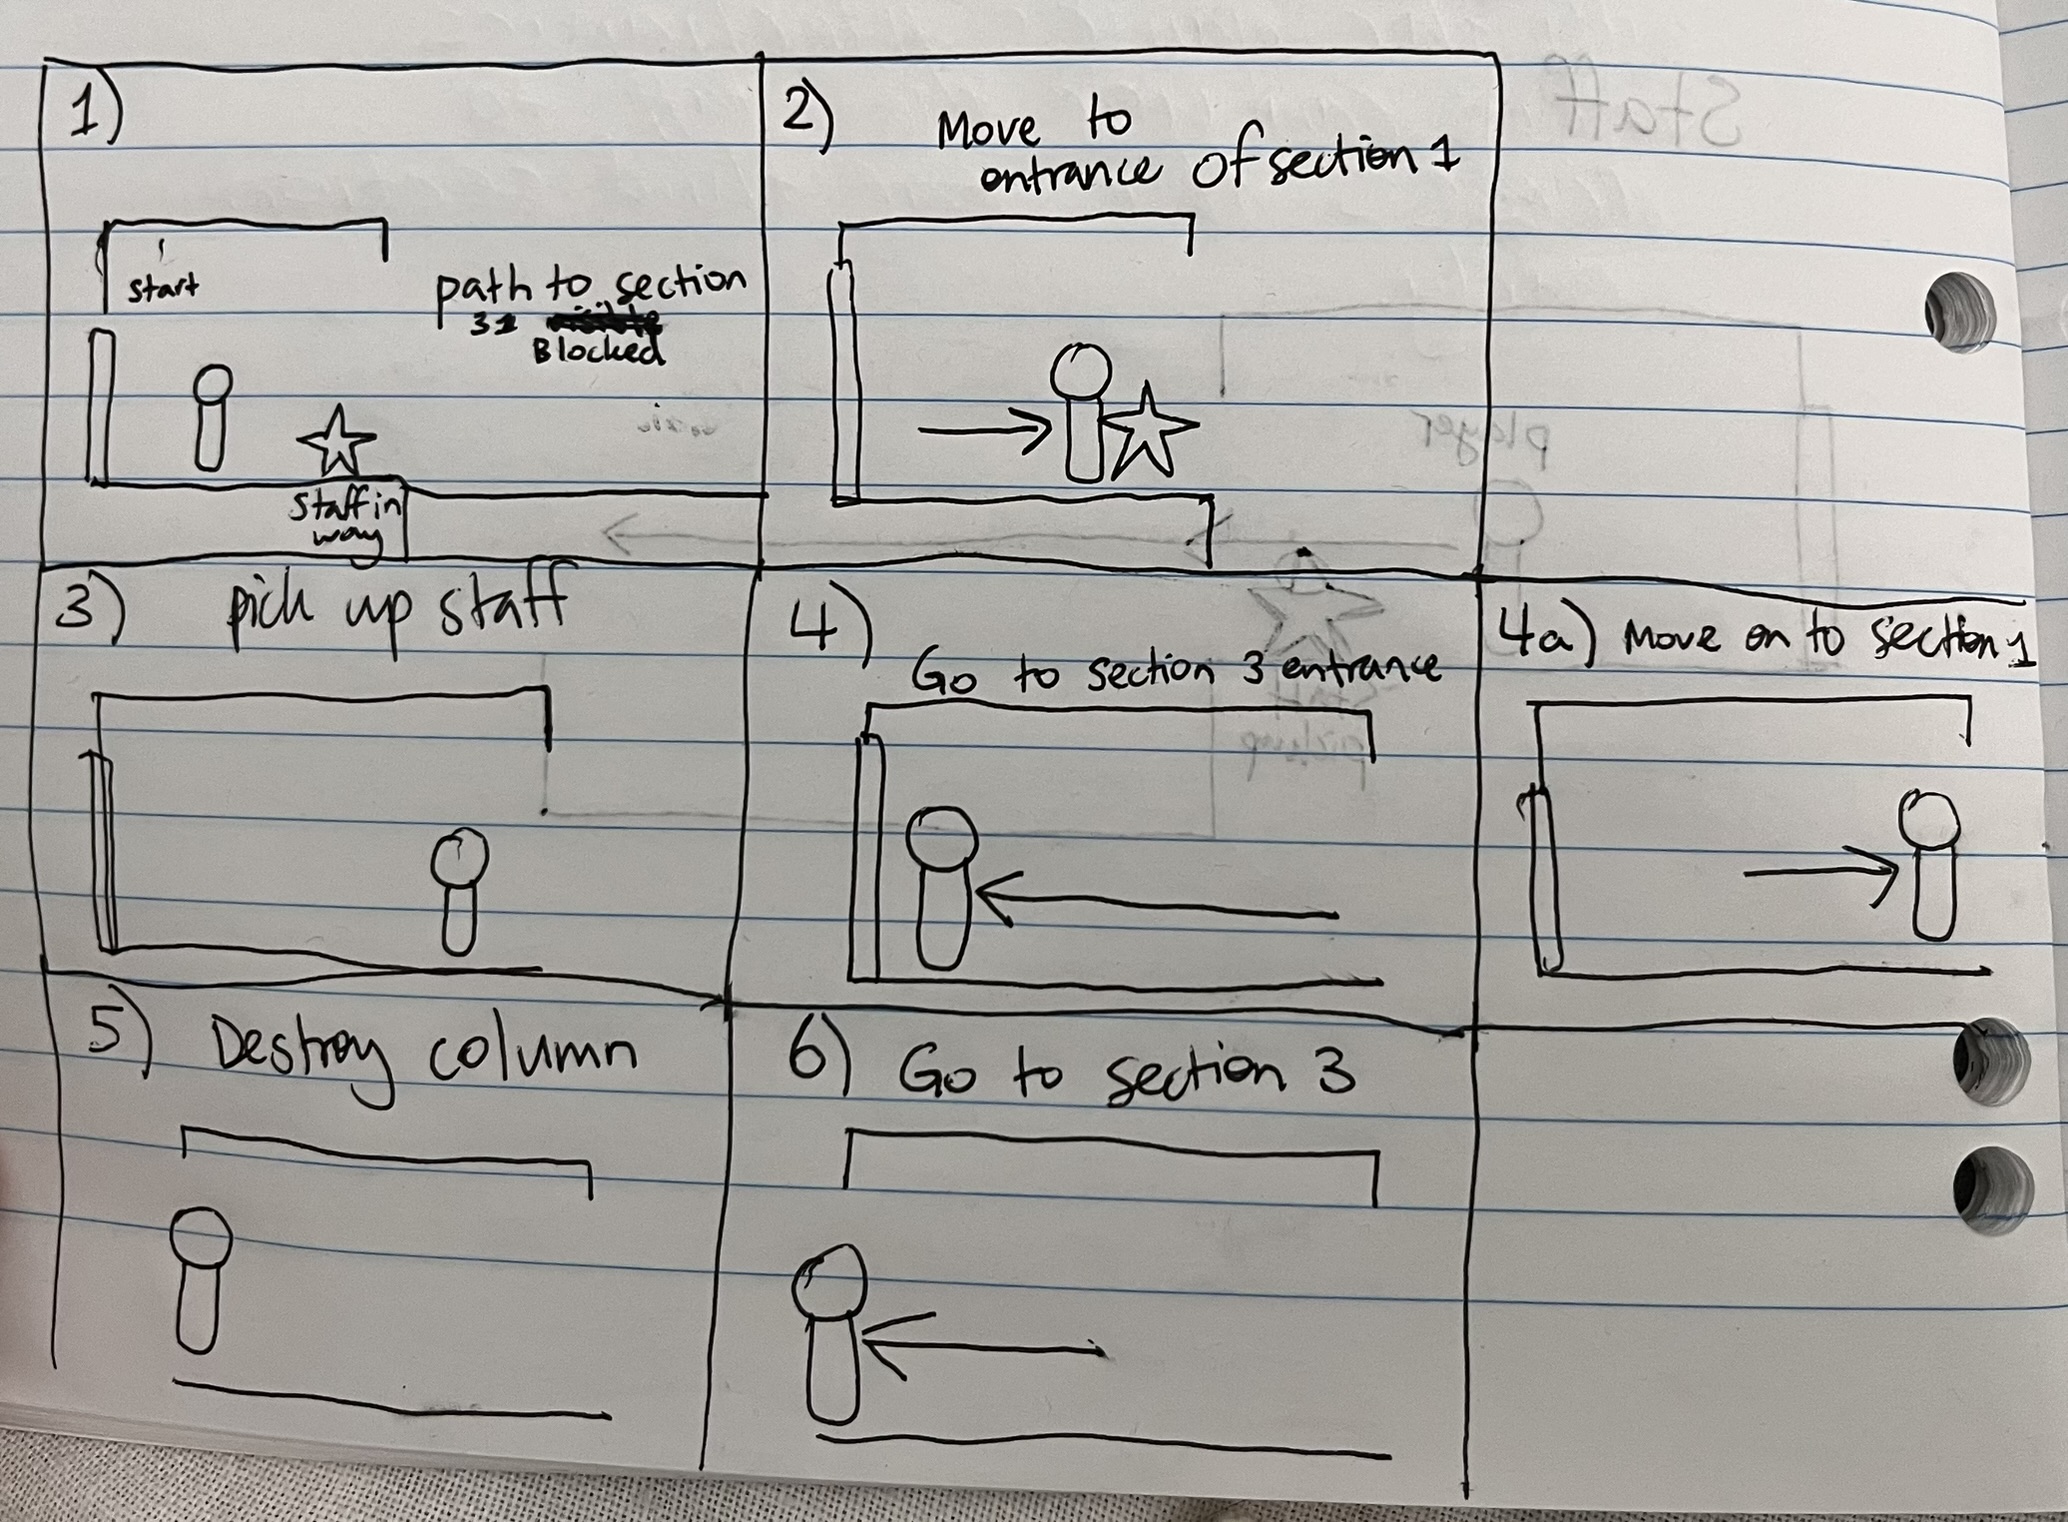 1)
start
path to section
Blocked
Staff in
way
2)
Move to
entrance of section 1
3)
pick up staff
4)
Go to section 3 entrance
4a) Move on to section 1
5) Destroy column
6) Go to section 3
Staff
player
Staff
pickup